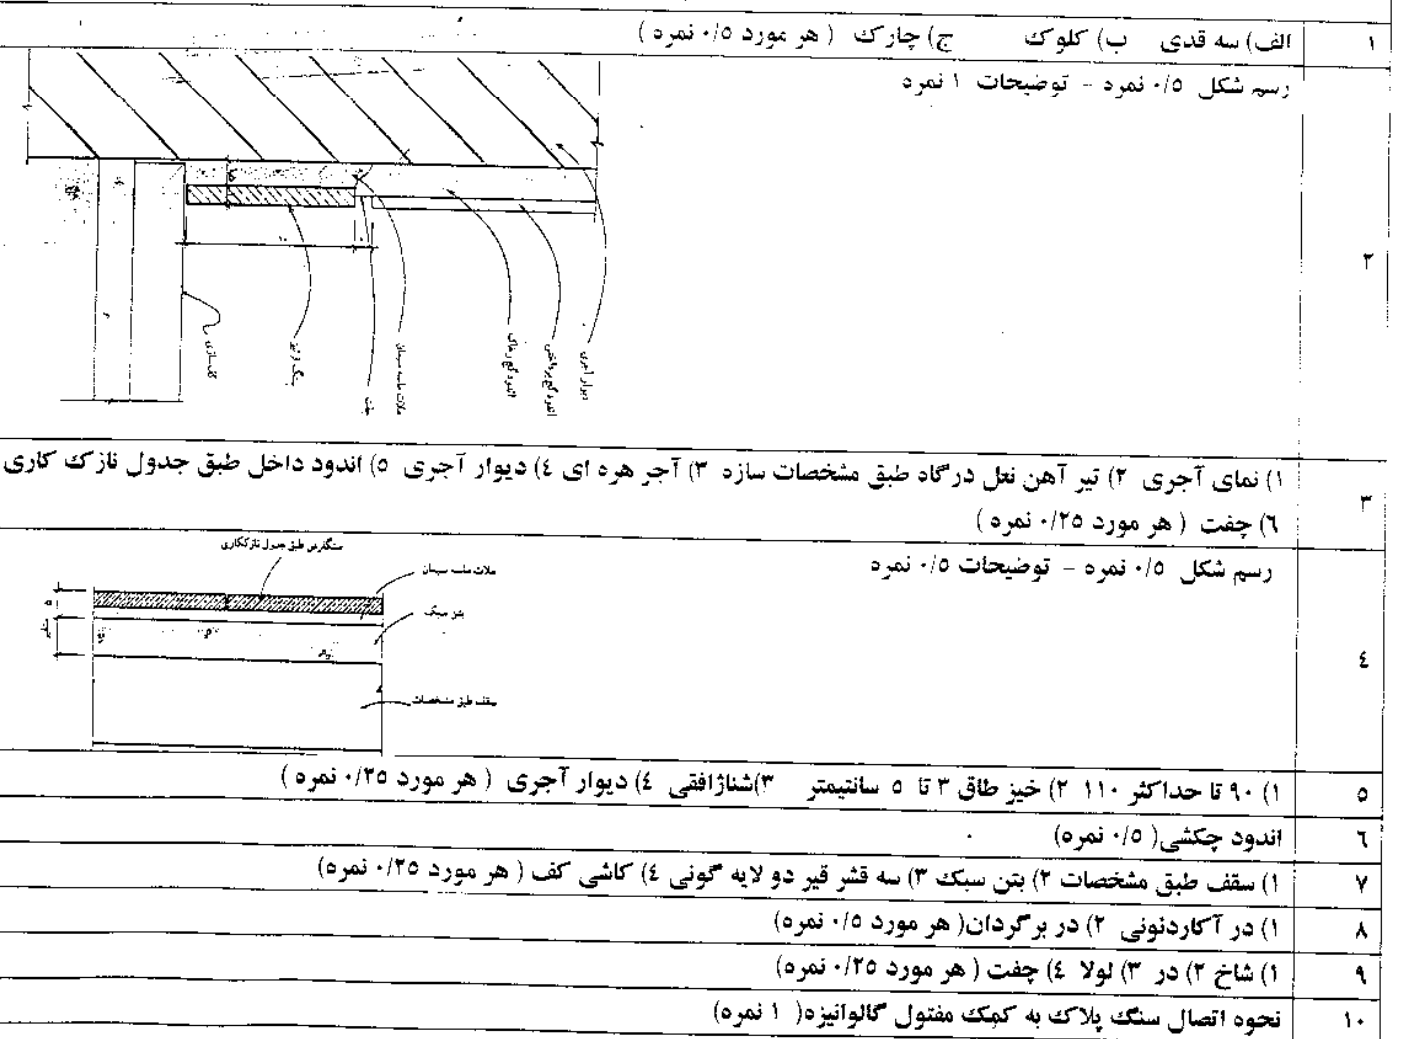 ۱ الف) سه قدی ب) کلوک ج) چارک ( هر مورد ۰/۵ نمره )
رسم شکل ۰/۵ نمره - توضیحات ۱ نمره
۲
دیوار آجری
اندود گچ پرداختی
اندود گچ و خاک
ملات ماسه سیمان
چفت
سنگ قرنیز
کف سازی
۱) نمای آجری ۲) تیر آهن نعل درگاه طبق مشخصات سازه ۳) آجر هره ای ٤) دیوار آجری ۵) اندود داخل طبق جدول نازک کاری
۳
٦) چفت ( هر مورد ۰/۲۵ نمره )
رسم شکل ۰/۵ نمره - توضیحات ۰/۵ نمره
٤
سنگفرش طبق جدول نازککاری
ملات ماسه سیمان
بتن سبک
سقف طبق مشخصات
۵ ۱) ۹۰ تا حداکثر ۱۱۰ ۲) خیز طاق ۳ تا ۵ سانتیمتر ۳)شناژافقی ٤) دیوار آجری ( هر مورد ۰/۲۵ نمره )
٦ اندود چکشی( ۰/۵ نمره)
۷ ۱) سقف طبق مشخصات ۲) بتن سبک ۳) سه قشر قیر دو لایه گونی ٤) کاشی کف ( هر مورد ۰/۲۵ نمره)
۸ ۱) در آکاردئونی ۲) در برگردان( هر مورد ۰/۵ نمره)
۹ ۱) شاخ ۲) در ۳) لولا ٤) چفت ( هر مورد ۰/۲۵ نمره)
۱۰ نحوه اتصال سنگ پلاک به کمک مفتول گالوانیزه( ۱ نمره)